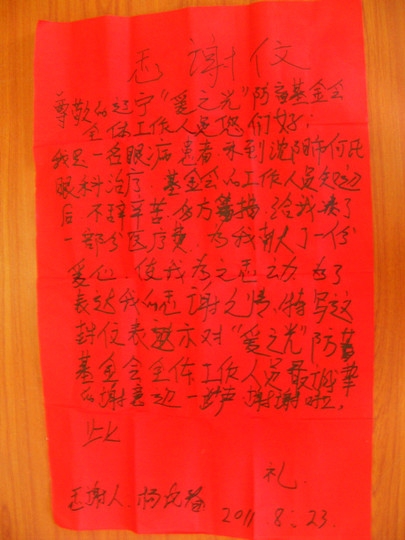 感谢信
尊敬的辽宁“爱之光”防盲基金会
全体工作人员您们好:
我是一名眼病患者,来到沈阳市何氏
眼科治疗,基金会的工作人员知道
后,不辞辛苦,多方筹措,给我凑了
一部分医疗费,为我献了一份
爱心,使我为之感动,为了
表达我的感谢之情,特写这
封信表达示对“爱之光”防盲
基金会全体工作人员最诚挚
的谢意道一声,谢谢啦,
此
礼.
感谢人:杨
2011.8.23.